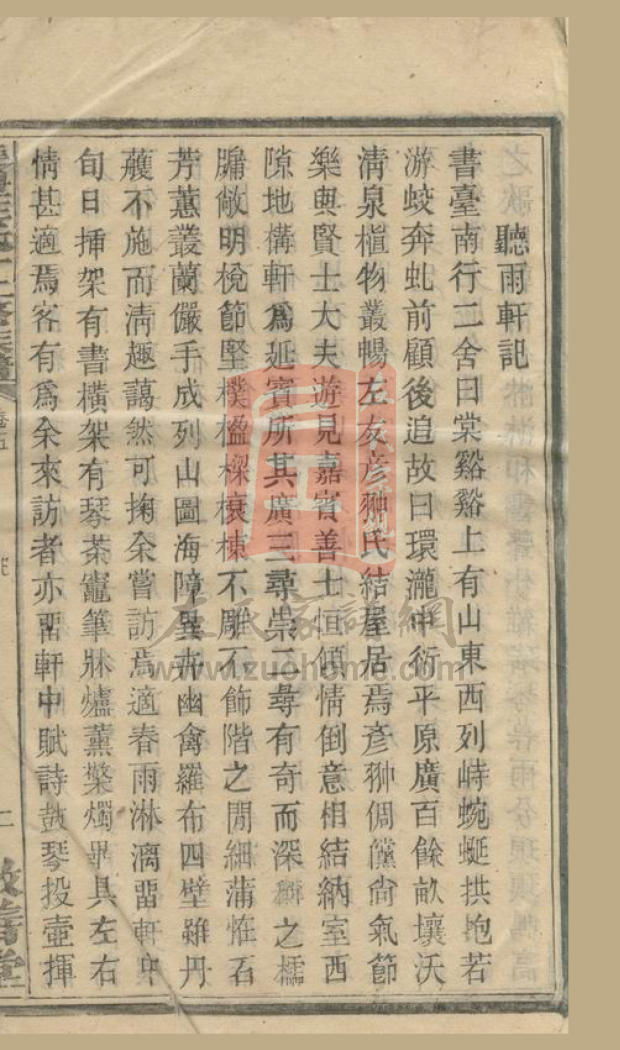 聽雨軒記
書臺南行二舍曰棠谿谿上有山東西列峙蜿蜒拱抱若
游蛟奔虬前顧後追故曰環瀧中衍平原廣百餘畝壤沃
淸泉植物叢暢左友彥翀氏結屋居焉彥翀倜儻尙氣節
樂與賢士大夫遊見嘉賓善士恒傾情倒意相結納室西
隙地構軒爲延賓所其廣三尋崇二尋有奇而深之檽
牖敞明梲節堅樸楹榱棟不雕不飾階之閒細蒲恠石
芳蕙叢蘭儼乎成列山圖海障異卉幽禽羅布四壁雖丹
雘不施而淸趣藹然可掬余嘗訪焉適春雨淋漓畱軒中
旬日揷架有書橫架有琴茶竈筆牀爐薰檠燭畢具左右
情甚適焉客有爲余來訪者亦畱軒中賦詩鼓琴投壺揮
卷五
二
敦善堂
左氏家譜網
www.zuohome.com